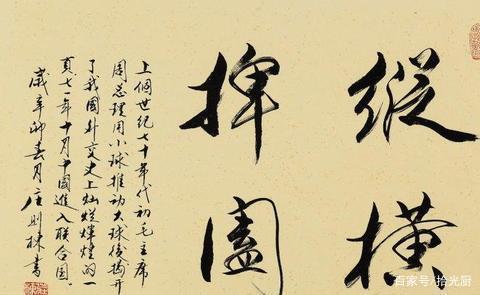 縱橫
捭闔
上個世紀七十年代初毛主席
周总理用小球推动大球後揭开
了我國外交史上灿烂輝煌的一
頁七一年十月中國進入联合国。
歲辛卯春月庄则栋書
百家号/拾光厨